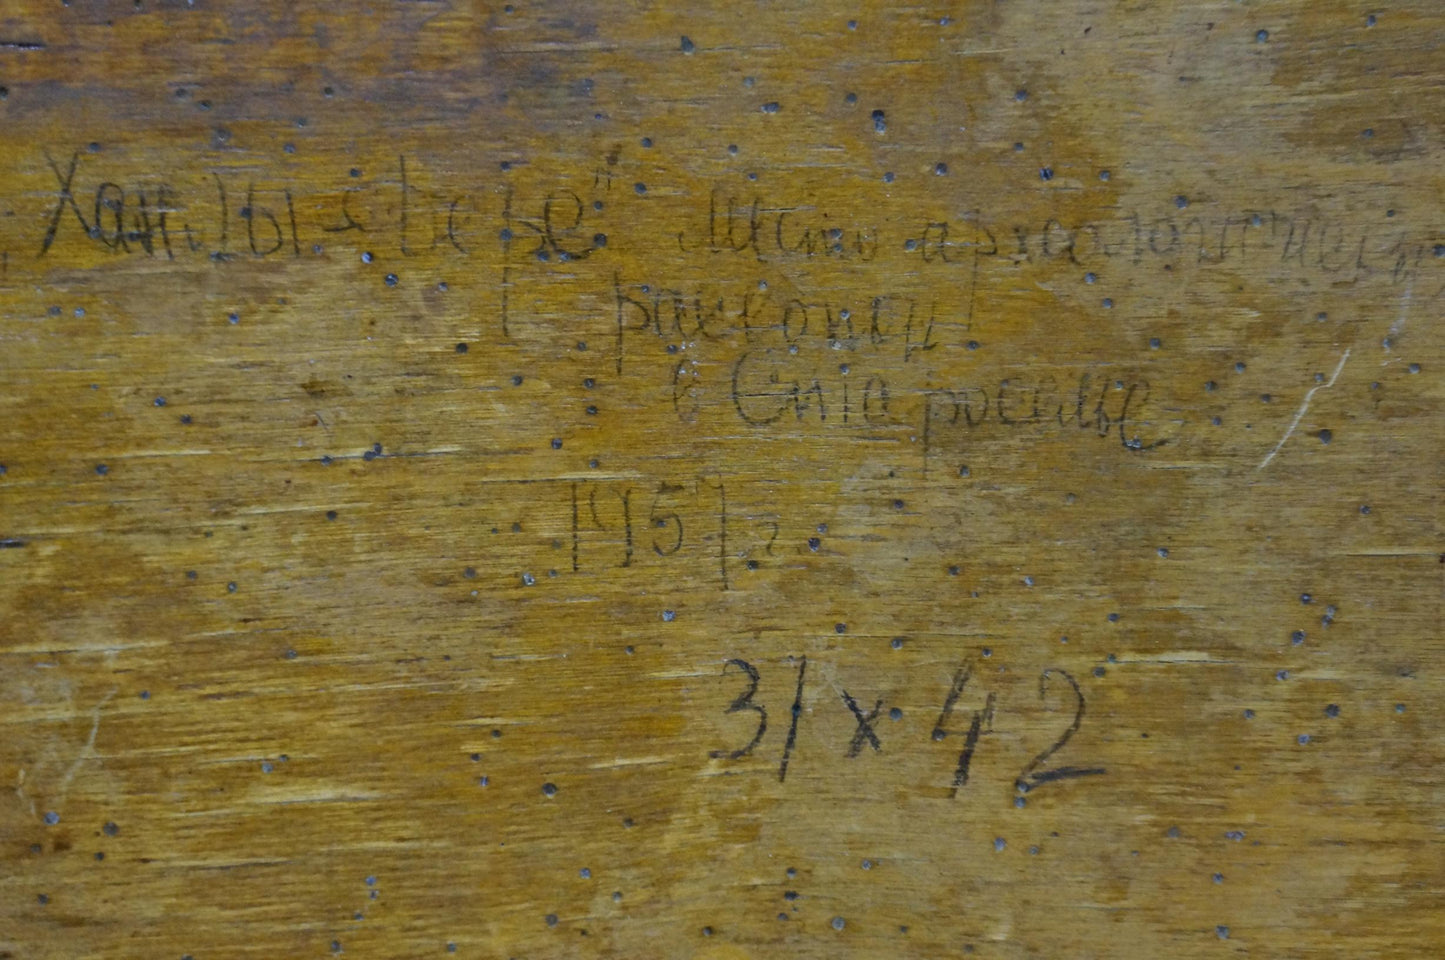 „Ханты-Тере" Место археологических
раскопок
в Староселье
1957 г.
31 x 42